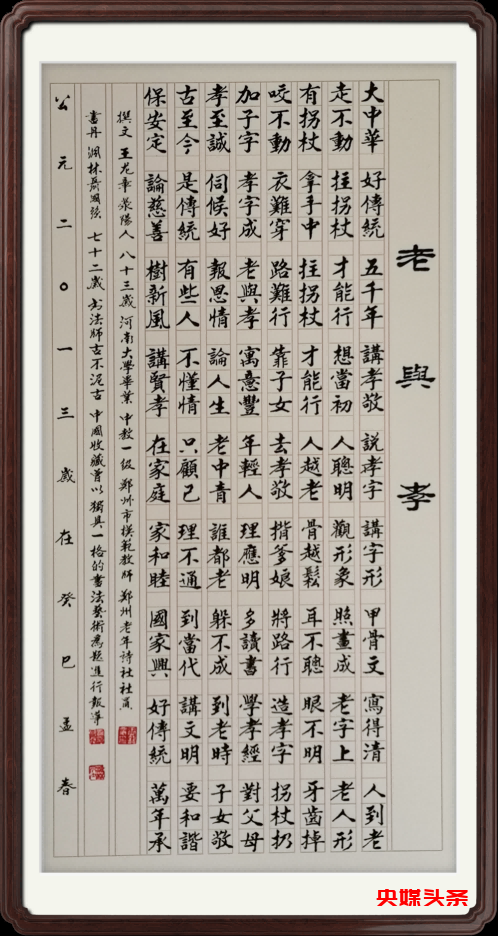 老與孝
大中華好傳統五千年講孝敬說孝字講字形甲骨文寫得清人到老
走不動拄拐杖才能行想當初人聰明觀形象照畫成老字上老人形
有拐杖拿手中拄拐杖才能行人越老骨越鬆耳不聰眼不明牙齒掉
咬不動衣難穿路難行靠子女去孝敬揹爹娘將路行造孝字拐杖扔
加子字孝字成老與孝寓意豐年輕人理應明多讀書學孝經對父母
孝至誠伺候好報恩情論人生老中青誰都老躲不成到老時子女敬
古至今是傳統有些人不懂情只顧己理不通到當代講文明要和諧
保安定論慈善樹新風講賢孝在家庭家和睦國家興好傳統萬年承
撰文 王尤華 滎陽人 八十三歲 河南大學畢業 中教一級 鄭州市模範教師 鄭州老年詩社社員
書丹 七十二歲 书法師古不泥古 中國收藏曾以獨具一格的書法藝術為題進行報導
公元二〇一三歲在癸巳孟春
央媒头条